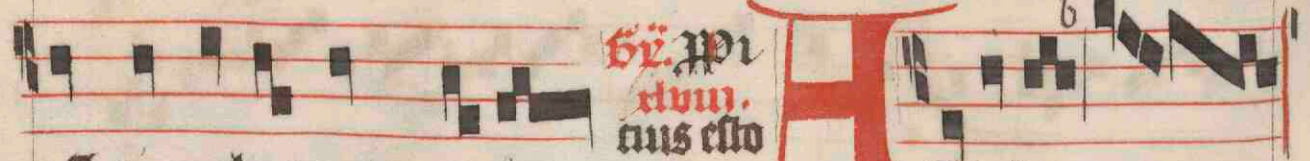 Gr̃. Ꝓpi
xlviij.
cius esto
A